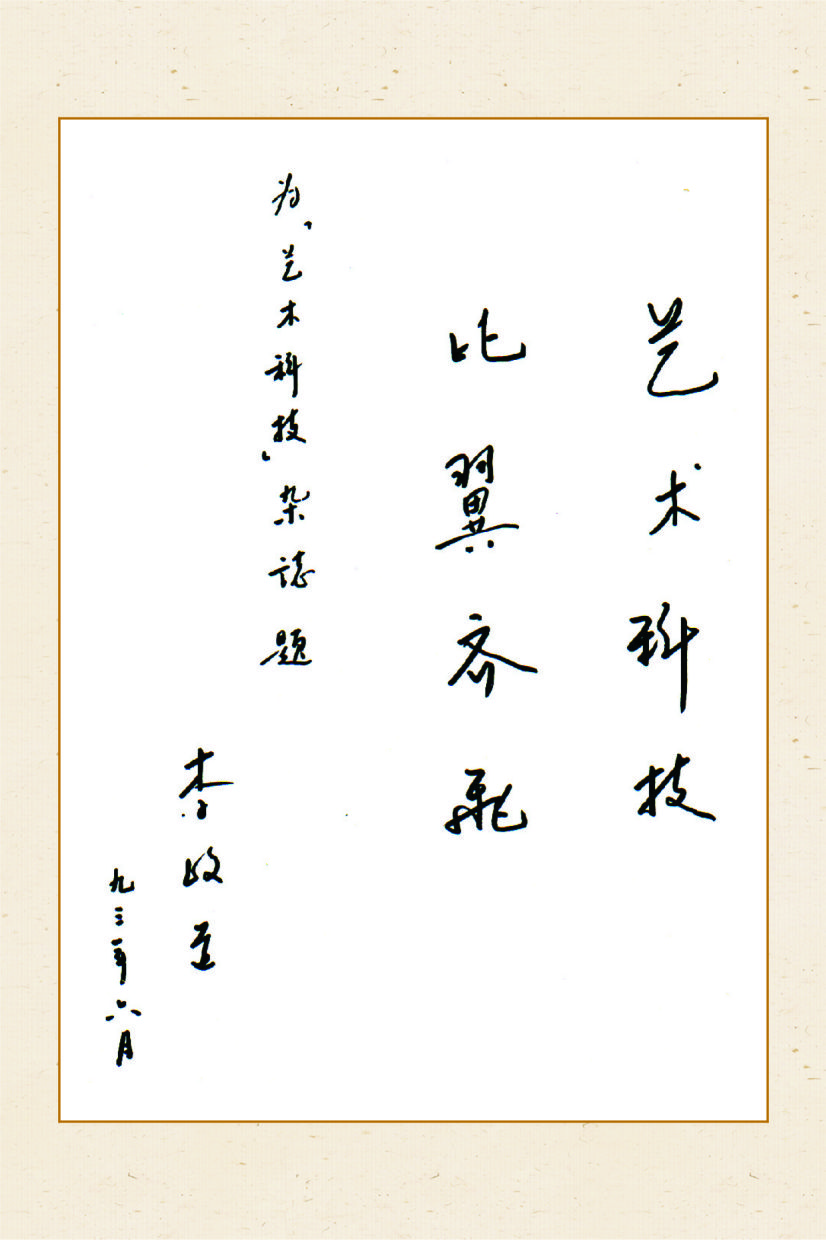 艺术科技
比翼齐飞
为「艺术科技」杂誌题
李政道
九三年六月